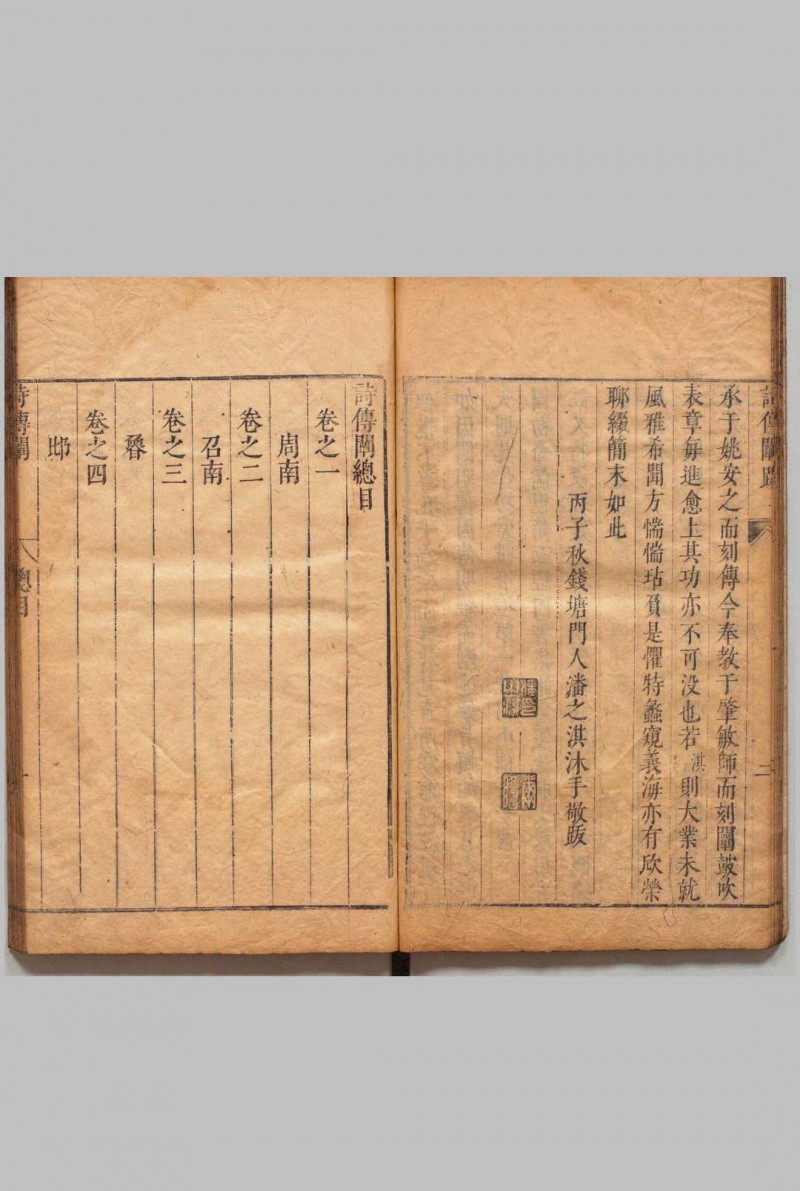 詩傳闡跋
二
承于姚安之而刻傳今奉教于肇敏師而刻闡鼓吹
表章每進愈上其功亦不可没也若淇則大業未就
風雅希聞方惴惴玷頁是懼特蠡窺義海亦有欣榮
聊綴簡末如此
丙子秋錢塘門人潘之淇沐手敬䟦
詩傳闡總目
卷之一
周南
卷之二
召南
卷之三
卷之四
邶
詩傳闡
總目
一